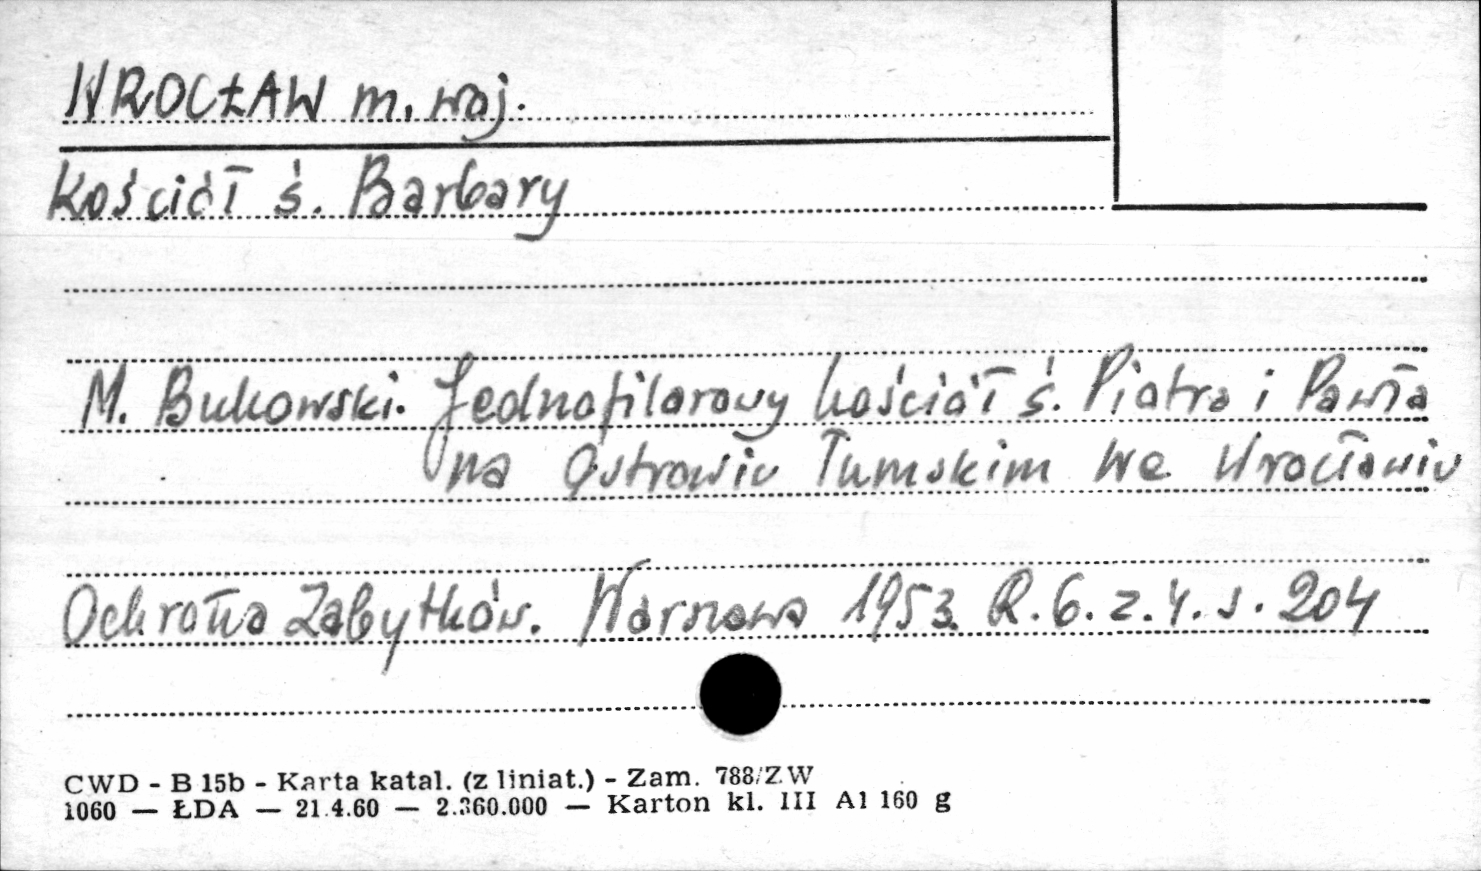 WROCŁAW m. woj.
Kościół ś. Barbary
M. Bukowski. Jednofilarowy kościół ś. Piotra i Pawła
na Ostrowiu Tumskim we Wrocławiu
Ochrona Zabytków. Warszawa 1953. R. 6. z. 4. s. 204
CWD - B 15b - Karta katal. (z liniat.) - Zam. 788/ZW
1060 — ŁDA — 21.4.60 — 2.360.000 — Karton kl. III A1 160 g